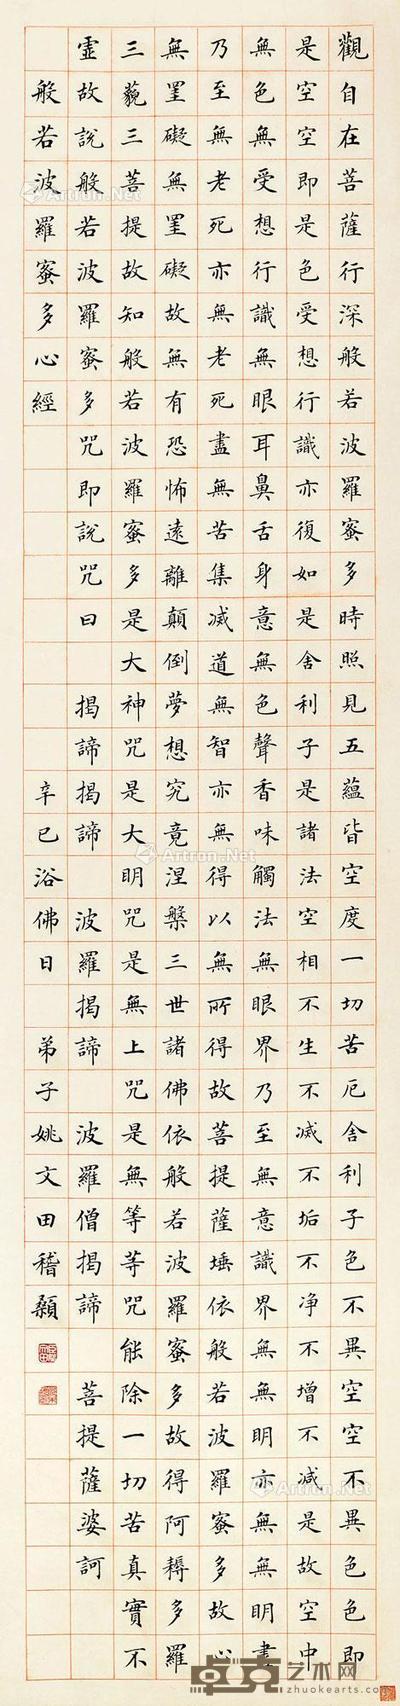 觀自在菩薩行深般若波羅蜜多時照見五蘊皆空度一切苦厄舍利子色不異空空不異色色即
是空空即是色受想行識亦復如是舍利子是諸法空相不生不滅不垢不净不增不減是故空中
無色無受想行識無眼耳鼻舌身意無色聲香味觸法無眼界乃至無意識界無無明亦無無明盡
乃至無老死亦無老死盡無苦集滅道無智亦無得以無所得故菩提薩埵依般若波羅蜜多故心
無罣礙無罣礙故無有恐怖遠離顛倒夢想究竟涅槃三世諸佛依般若波羅蜜多故得阿耨多羅
三藐三菩提故知般若波羅蜜多是大神咒是大明咒是無上咒是無等等咒能除一切苦真實不
虛故說般若波羅蜜多咒即說咒曰 揭諦揭諦 波羅揭諦 波羅僧揭諦 菩提薩婆訶
般若波羅蜜多心經 辛巳浴佛日 弟子姚文田稽顙
Artron.Net
Artron.Net
Artron.Net
Artron.Net
卓克艺术网
zhuokearts.com